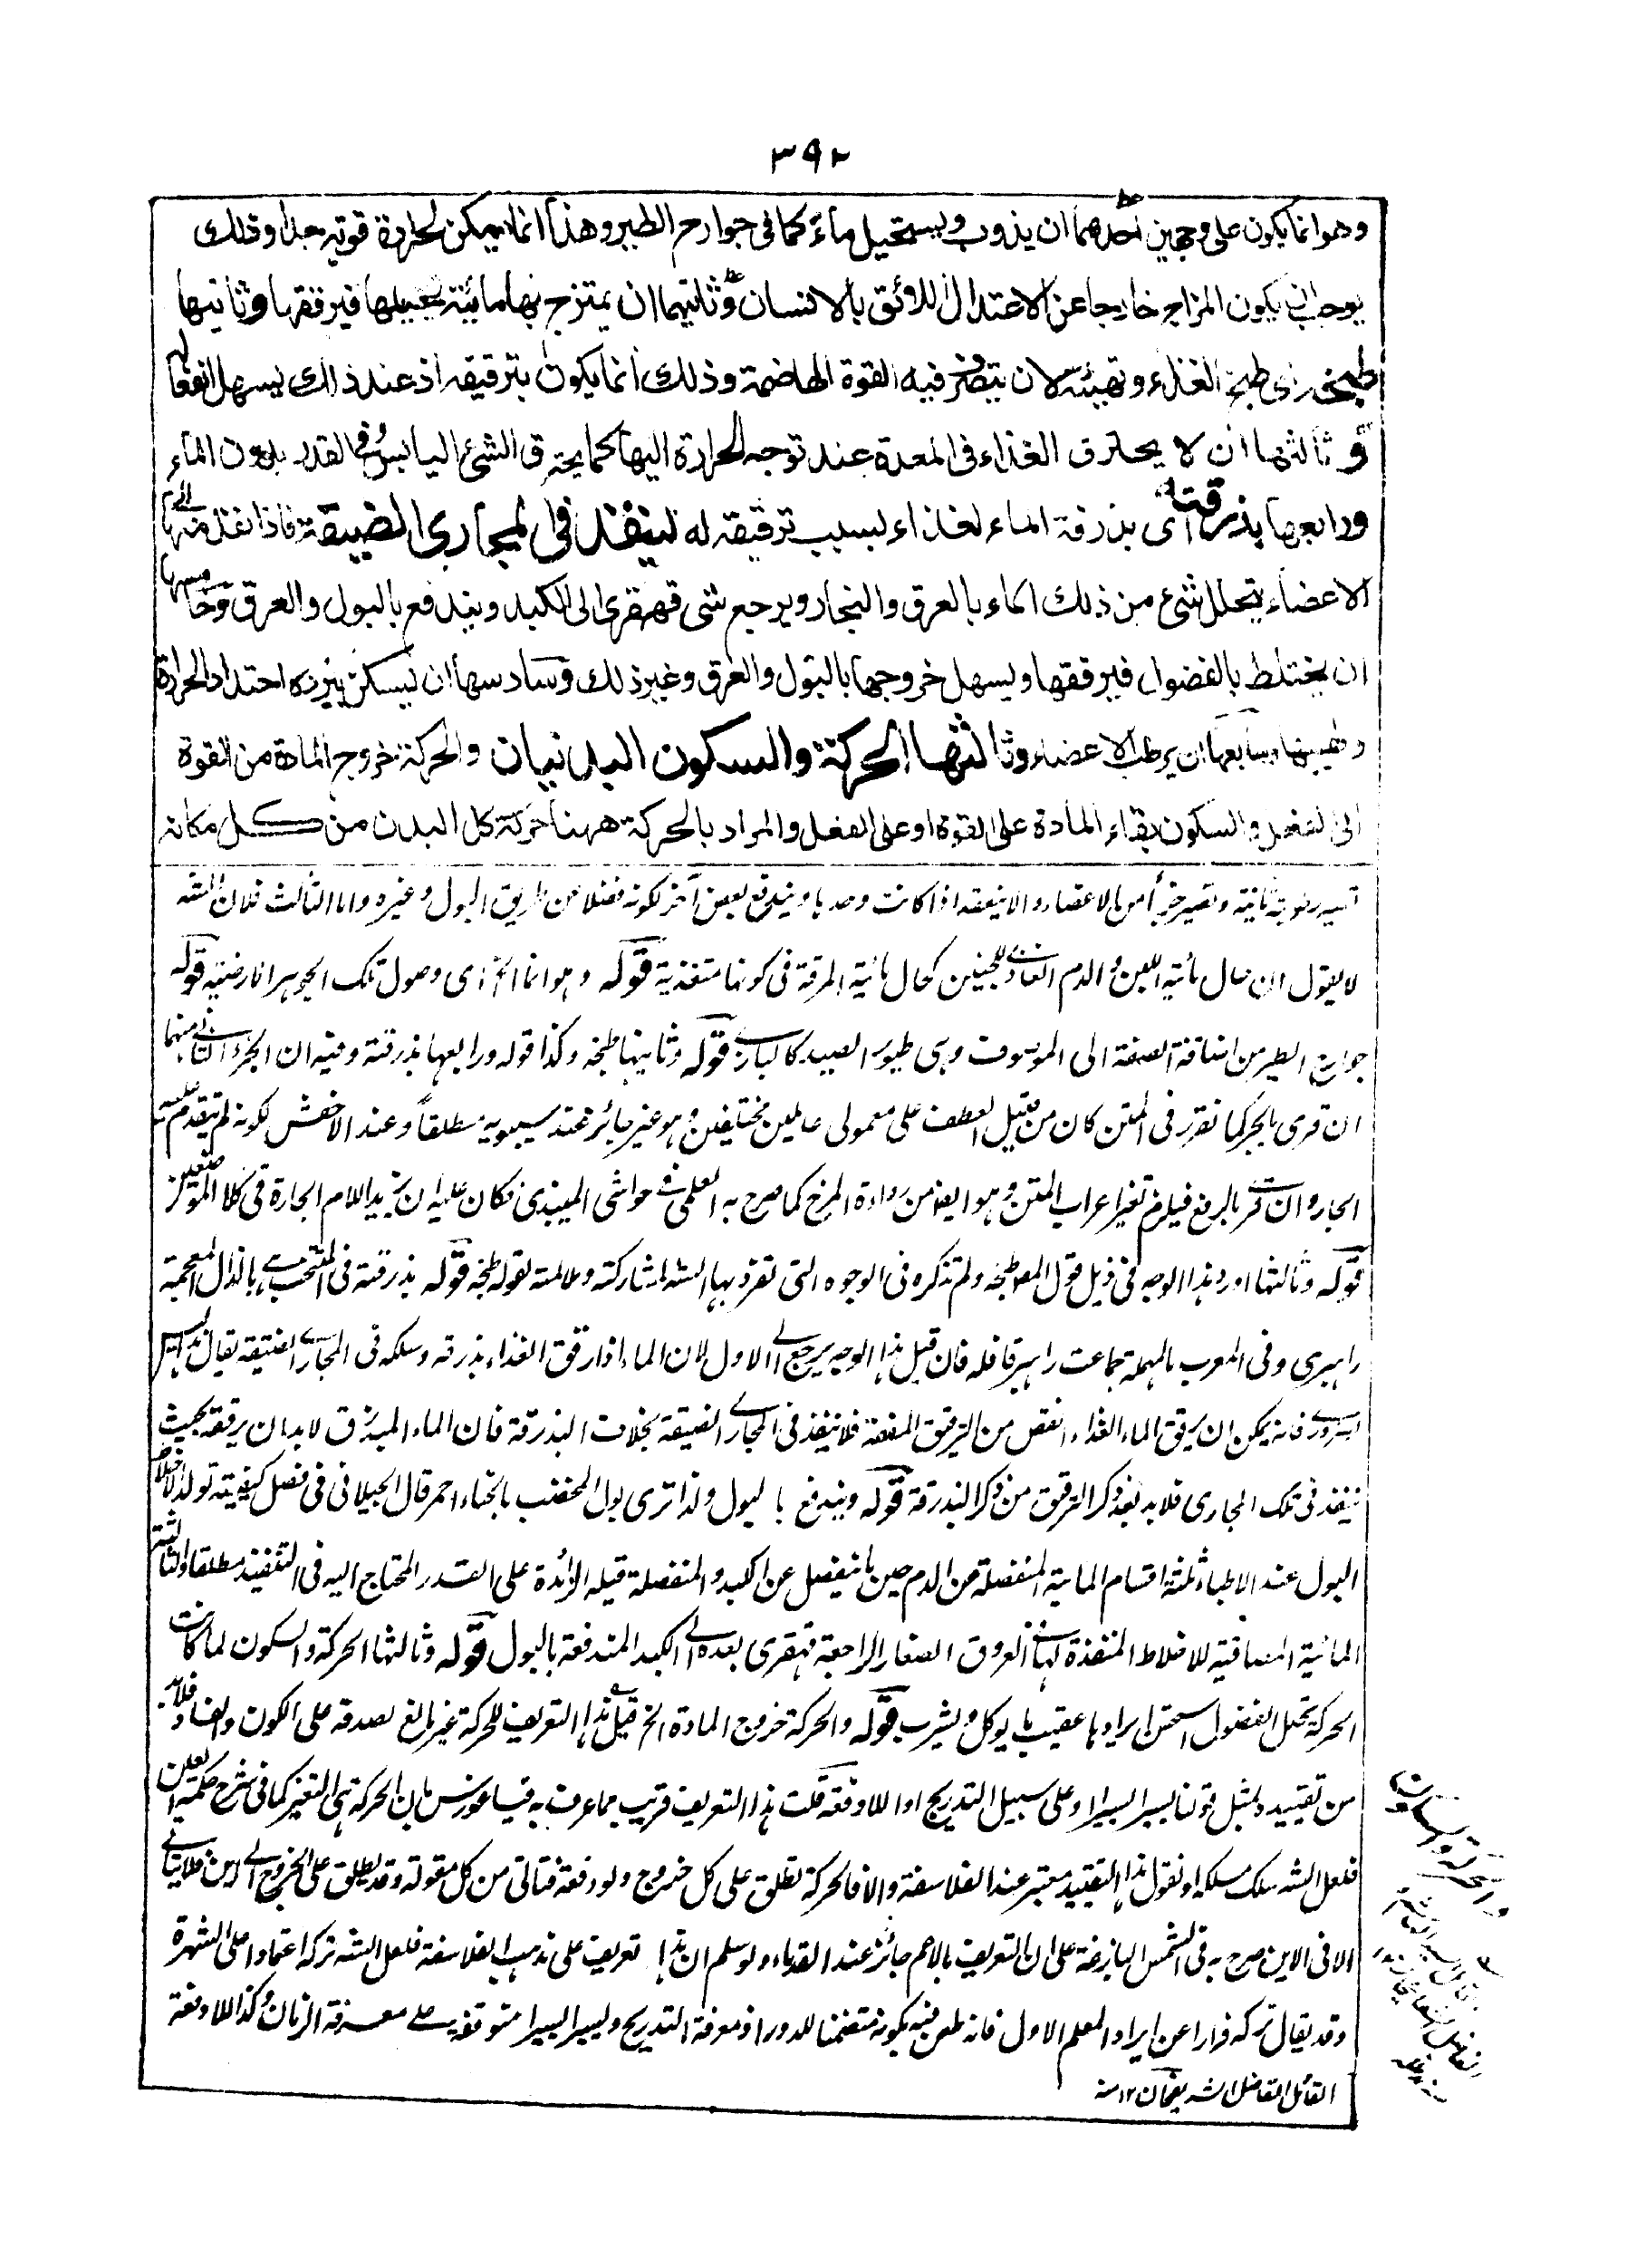 ٣٩٢
وهو انما يكون على وجهين احدهما ان يذوب ويستحيل ماء كما فى جوارح الطير وهذا انما يمكن لحرارة قوية جدا وذلك
يوجب ان يكون المزاج خارجا عن الاعتدال اللائق بالانسان وثانيهما ان يمتزج بها مائية تحيلها فيرققها وثانيها
طبخه اى طبخ الغذاء وتهيئته لان يتصرف فيه القوة الهاضمة وذلك انما يكون بترقيقه اذ عند ذلك يسهل انفعاله
وثالثها ان لا يحترق الغذاء فى المعدة عند توجه الحرارة اليها كما يحترق الشئ اليابس فى القدر بدون الماء
ورابعها بذرقته اى بذرقة الماء لغذاء بسبب ترقيقه له لينفذ فى المجارى الضيقة فاذا نفذ منها الى
الاعضاء يتحلل شئ من ذلك الماء بالعرق والبخار ويرجع شئ قهقرى الى الكبد ويندفع بالبول والعرق وخامسها
ان يختلط بالفضول فيرققها ويسهل خروجها بالبول والعرق وغير ذلك وسادسها ان يسكن ببرده احتداد الحرارة
ولهيبها وسابعها ان يرطب الاعضاء وثالثها الحركة والسكون البدنيان والحركة خروج المادة من القوة
الى الفعل والسكون بقاء المادة على القوة او على الفعل والمراد بالحركة ههنا حركة كل البدن من كل مكانه
رطوبة ثانية وتصير جزأ من الاعضاء والا نيعقد اذا كانت وحدها ويندفع بعض آخر لكونه فضلا عن طريق البول وغيره واما الثالث فلان الشه
لا يقول ان حال مائية اللبن والدم الغاذى للجنين كحال مائية المرقة فى كونها متغذية قوله وهو انما الخ اى وصول تلك الجوهر الارضية قوله
جوارح الطير من اضافة الصفة الى الموصوف وهى طيور الصيد كالبازى قوله وثانيها طبخه وكذا قوله ورابعها بذرقته وفيه ان الجزء الثانى منهما
ان قرئ بالجر كما تقرر فى المتن كان من قبيل العطف على معمولى عاملين مختلفين وهو غير جائز عند سيبويه مطلقاً وعند الاخفش لكونه لم يتقدم عليه
الجار وان قرئ بالرفع فيلزم تغير اعراب المتن وهو ايضا من رداءة المزج كما صرح به العلمى فى حواشى الميبذى فكان عليه ان يزيد اللام الجارة فى كلا الموضعين
قوله وثالثها اورد هذا الوجه فى ذيل قول المص طبخه ولم تذكره فى الوجوه التى تفرد بها الشه لمشاركته وملائمته لقوله طبخه قوله بذرقته فى المنتخب بالذال المعجمة
راهبرى وفى المعرب بالمهملة جماعت راهبر قافله فان قيل هذا الوجه يرجع الى الاول لان الماء اذا رقق الغذاء بذرقه وسلكه فى المجارى الضيقة يقال هذا ليس
بضرورى فانه يمكن ان يرقق الماء الغذاء انقص من الترقيق المنفذة فلا ينفذ فى المجارى الضيقة بخلاف البذرقة فان الماء المبذرق لا بد ان يرققه بحيث
ينفذ فى تلك المجارى فلا بد بعد ذكر الترقيق من ذكر البذرقة قوله ويندفع بالبول ولذا ترى بول المختضب بالحناء احمر قال الجيلانى فى فصل كيفية تولد الاخلاط
البول عند الاطباء ثلثة اقسام المائية المنفصلة من الدم حين ما ينفصل عن الكبد والمنفصلة قبله الزائدة على القدر المحتاج اليه فى التنفيذ مطلقا والثالثة
المائية المصاقبة للاخلاط المنفذة لها فى العروق الصغار الراجعة قهقرى بعده الى الكبد المندفعة بالبول قوله وثالثها الحركة والسكون لما كانت
الحركة تحلل الفضول استحق ايرادها عقيب ما يوكل ويشرب قوله والحركة خروج المادة الخ قيل هذا التعريف للحركة غير مانع لصدقه على الكون والفساد فلا بد
من تقييده بمثل قولنا يسيرا يسيرا او على سبيل التدريج او اللادفعة قلت هذا التعريف قريب مما عرف به فيثاغورس بان الحركة هى التغير كما فى شرح حكمة العين
فلعل الشه سلك مسلكه او نقول هذا التقييد معتبر عند الفلاسفة والا فالحركة تطلق على كل خروج ولو دفعة فتاتى من كل مقولة وقد يطلق على الخروج الى اين فلا ياتى
الا فى الاين صرح به فى الشمس البازغة على ان التعريف بالاعم جائز عند القدماء ولو سلم ان هذا تعريف على مذهب الفلاسفة فلعل الشه تركه اعتمادا على الشهرة
وقد يقال تركه فرارا عن ايراد المعلم الاول فانه طعن فيه بكونه متضمنا للدور اذ معرفة التدريج ويسيرا يسيرا متوقفة على معرفة الزمان وكذا اللادفعة
القائل الفاضل الشريف خان ١٢ منه